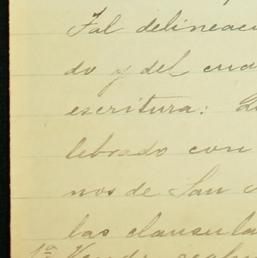 Tal delineac
do y del cua
escritura:
lebrado con
nos de San
las clausula
1ª Vende